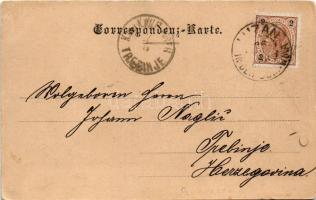 Correspondenz-Karte.
TREBINJE
2
2
Wolgeboren Herrn
Johann
Trebinje
Herzegovina